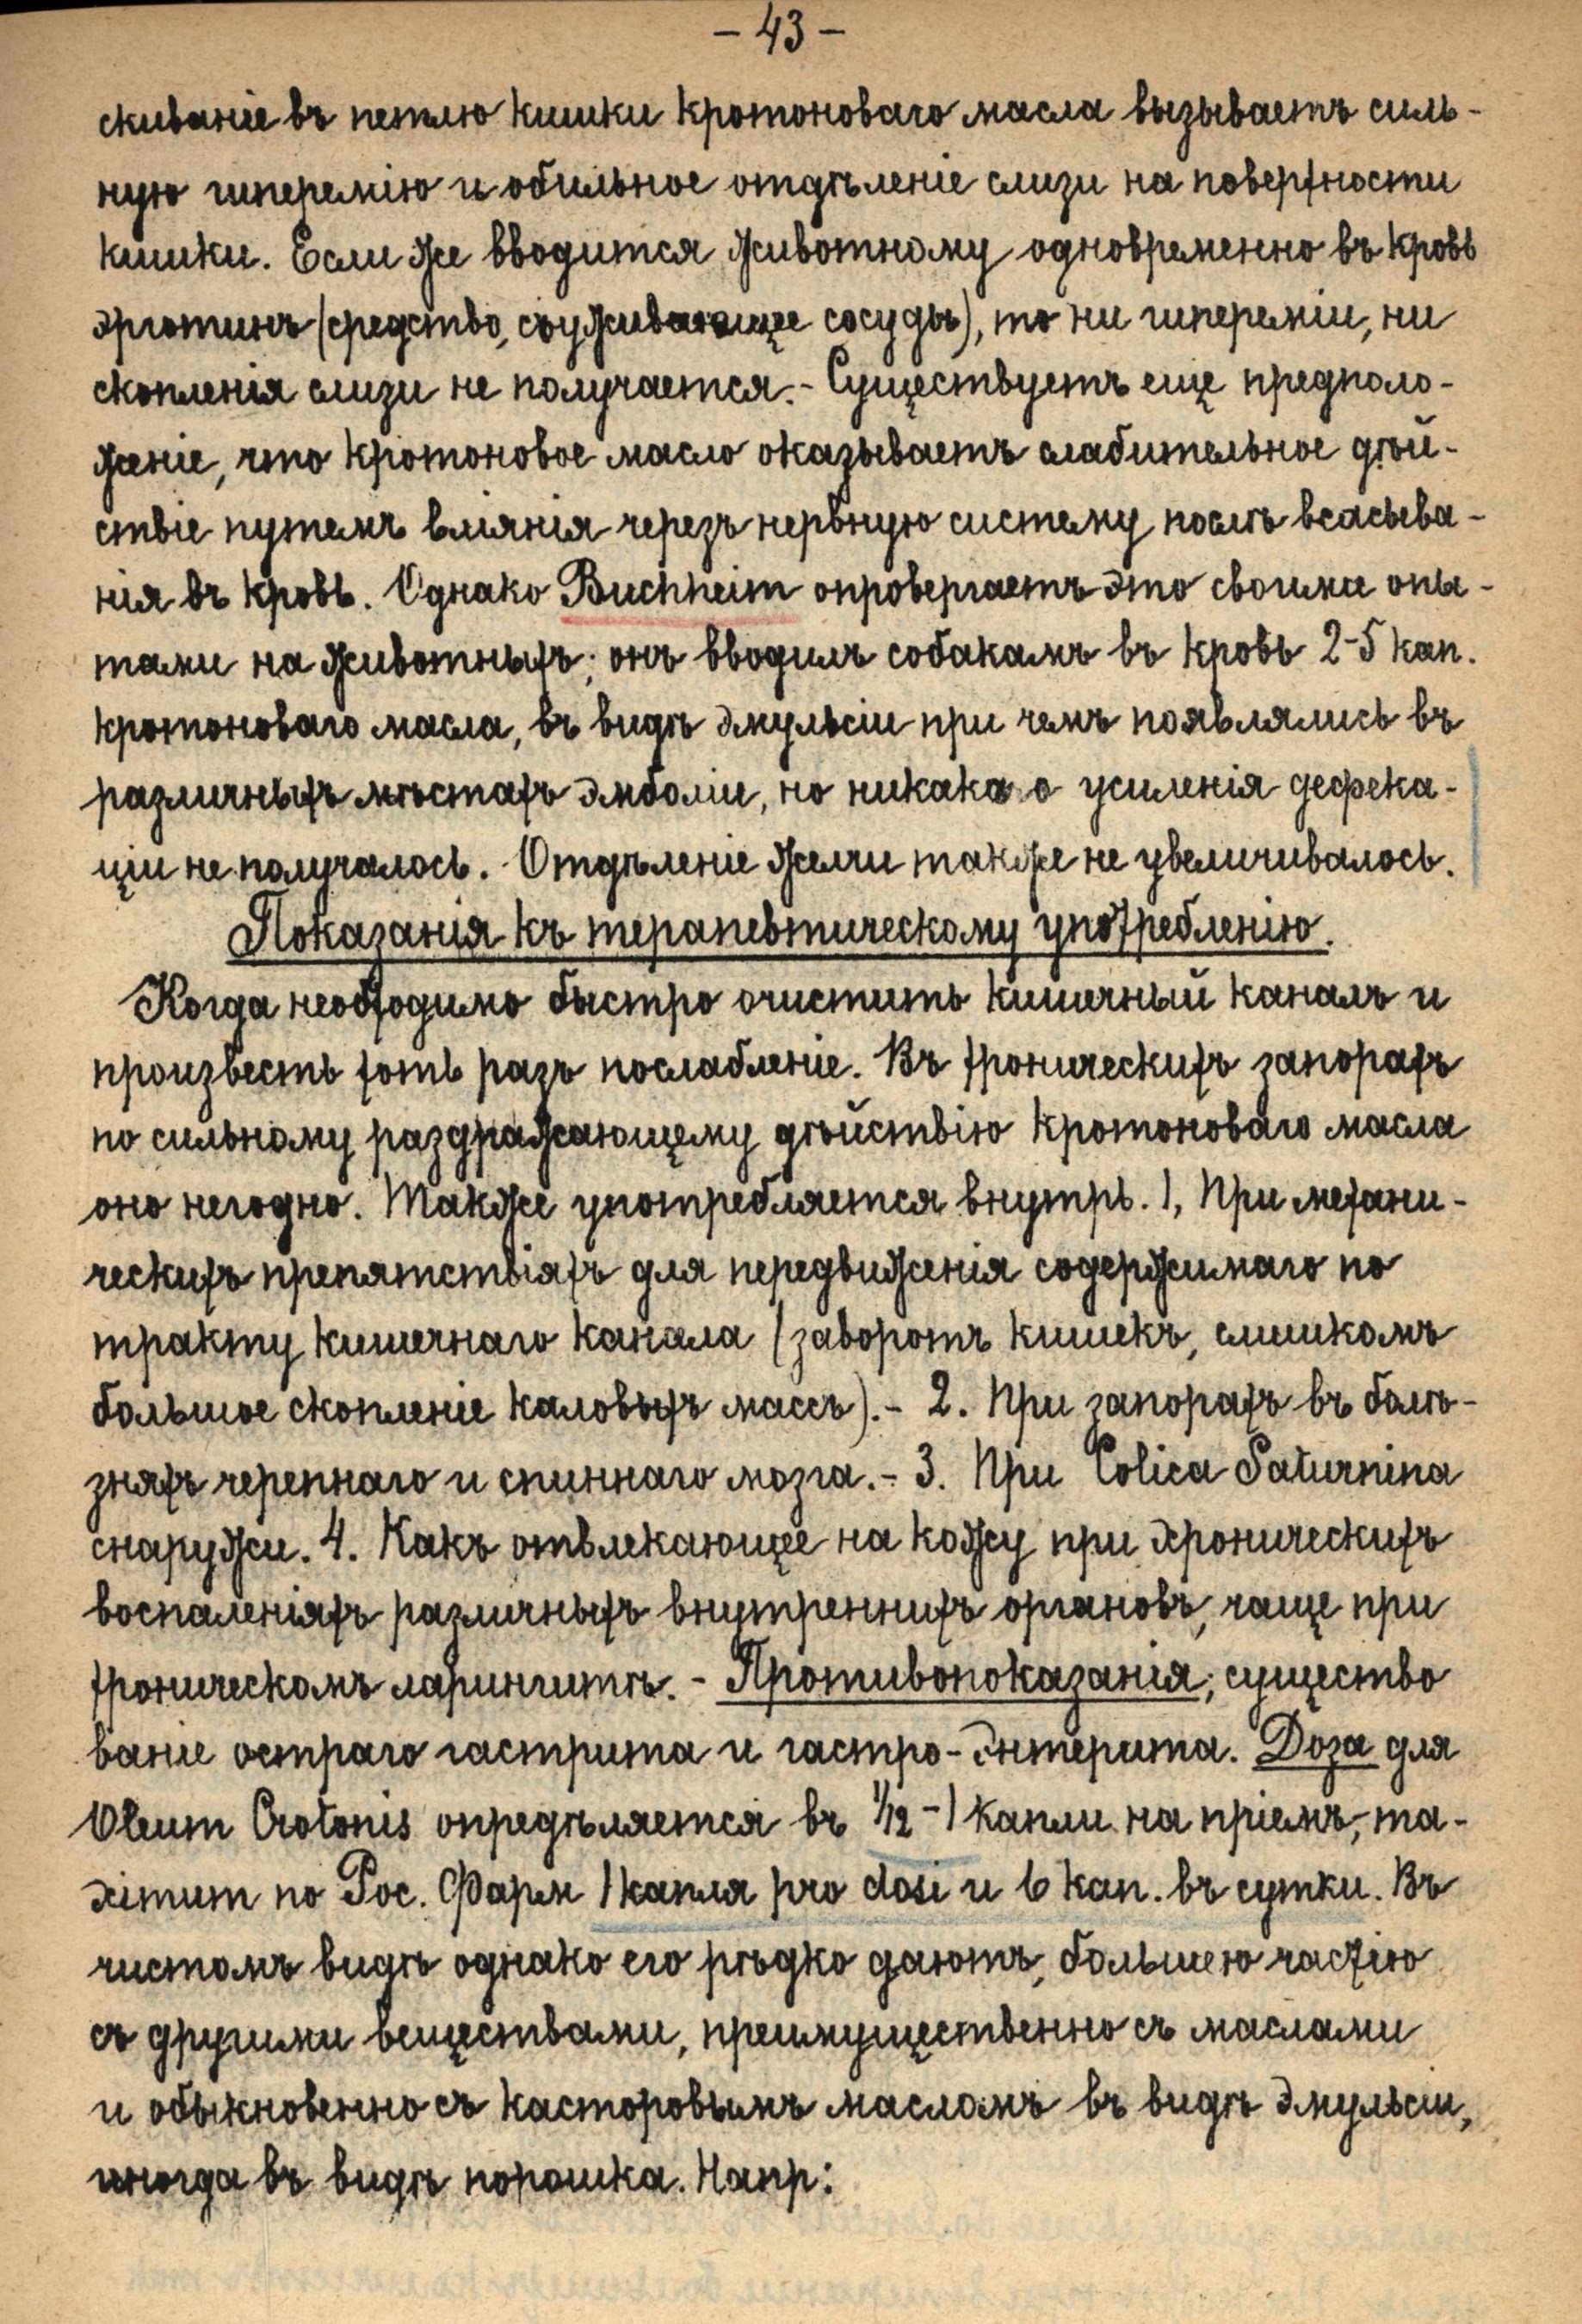 – 43 –
скиваніе въ петлю кишки кротоноваго масла вызываетъ силь-
ную гиперемію и обильное отдѣленіе слизи на поверхности
кишки. Если же вводится животному одновременно въ кровь
эрготинъ (средство, съуживающее сосуды), то ни гипереміи, ни
скопленія слизи не получается.- Существуетъ еще предполо-
женіе, что кротоновое масло оказываетъ слабительное дѣй-
ствіе путемъ вліянія черезъ нервную систему послѣ всасыва-
нія въ кровь. Однако Buchheim опровергаетъ это своими опы-
тами на животныхъ; онъ вводилъ собакамъ въ кровь 2-5 кап.
кротоноваго масла, въ видѣ эмульсіи при чемъ появлялись въ
различныхъ мѣстахъ эмболіи, но никакаго усиленія дефека-
ціи не получалось. Отдѣленіе желчи также не увеличивалось.
Показанія къ терапевтическому употребленію.
Когда необходимо быстро очистить кишечный каналъ и
произвесть хоть разъ послабленіе. Въ хроническихъ запорахъ
по сильному раздражающему дѣйствію кротоноваго масла
оно негодно. Также употребляется внутрь. 1, При механи-
ческихъ препятствіяхъ для передвиженія содержимаго по
тракту кишечнаго канала (заворотъ кишекъ, слишкомъ
большое скопленіе каловыхъ массъ).- 2. При запорахъ въ болѣ-
зняхъ черепнаго и спиннаго мозга.- 3. При Colica Saturnina
снаружи. 4. Какъ отвлекающее на кожу при хроническихъ
воспаленіяхъ различныхъ внутреннихъ органовъ, чаще при
хроническомъ ларингитѣ. - Противопоказанія; существо
ваніе остраго гастрита и гастро-энтерита. Доза для
Oleum Crotonis опредѣляется въ 1/12 -1 капли на пріемъ; ma-
ximum по Рос. Фарм 1 капля pro dosi и 6 кап. въ сутки. Въ
чистомъ видѣ однако его рѣдко даютъ, большею частію
съ другими веществами, преимущественно съ маслами
и обыкновенно съ касторовымъ масломъ въ видѣ эмульсіи,
иногда въ видѣ порошка. Напр: